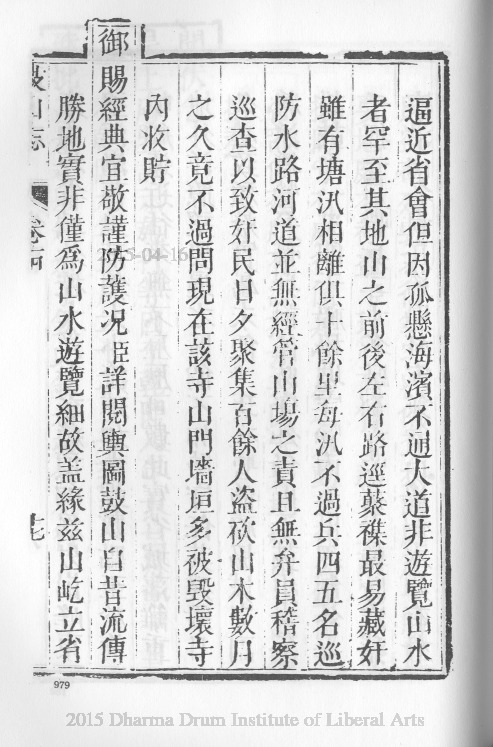 逼近省會但因孤懸海濱不通大道非遊覽山水
者罕至其地山之前後左右路逕叢襍最易藏奸
雖有塘汛相離俱十餘里每汛不過兵四五名巡
防水路河道並無經管山塲之責且無弁員稽察
巡查以致奸民日夕聚集百餘人盜砍山木數月
之久竟不過問現在該寺山門墻垣多被毀壞寺
內收貯
御賜經典宜敬謹防護况臣詳閱輿圖鼓山自昔流傳
勝地實非僅爲山水遊覽細故盖緣茲山屹立省
鼓山志
卷古
七
979
2015-04-16
2015 Dharma Drum Institute of Liberal Arts